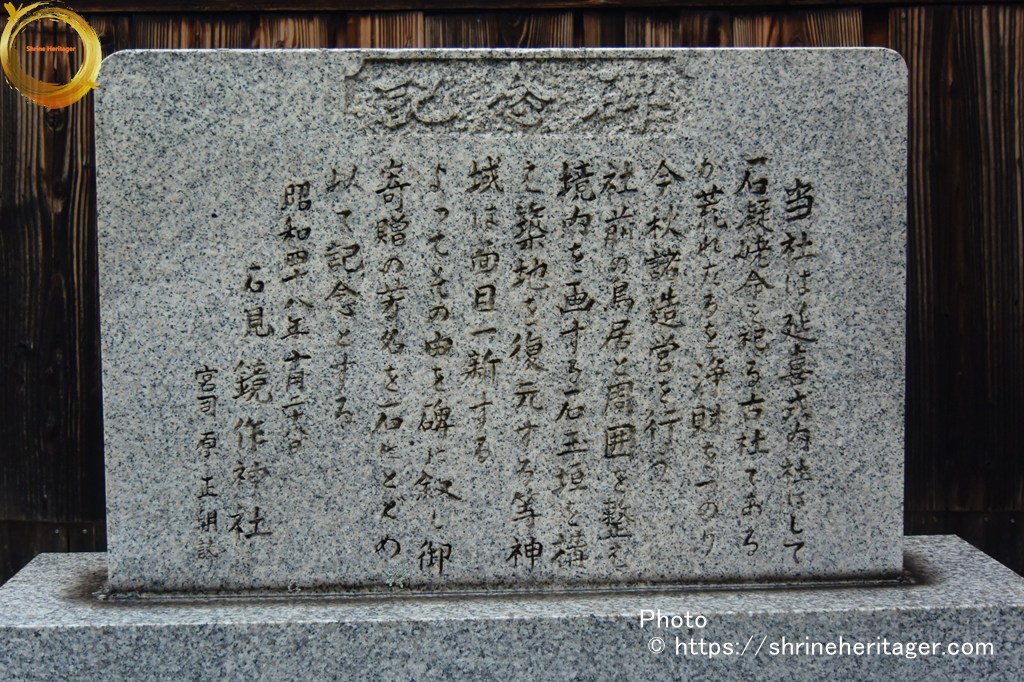 Shrine Heritager
記念碑
当社は延喜式内社にして
石凝姥命を祀る古社である
が荒れたるを浄財をつのり
今秋諸造営を行ひ
社前の鳥居と周囲を整え
境内を画する石玉垣を構
え築地を復元する等神
域は面目一新する
よってその由を碑に叙し御
寄贈の芳名を石にとどめ
以て記念とする
昭和四十八年十月二十八日
石見 鏡作神社
宮司 原 正朝
Photo
© https://shrineheritager.com